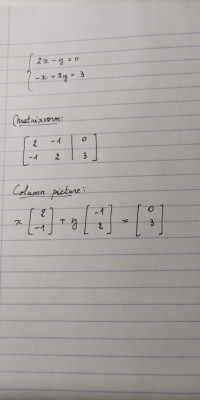 2x - y = 0
-x + 2y = 3
Matrixvorm:
[ 2 -1 | 0 ]
[ -1 2 | 3 ]
Column picture:
x [ 2 ] + y [ -1 ] = [ 0 ]
[ -1 ] [ 2 ] [ 3 ]